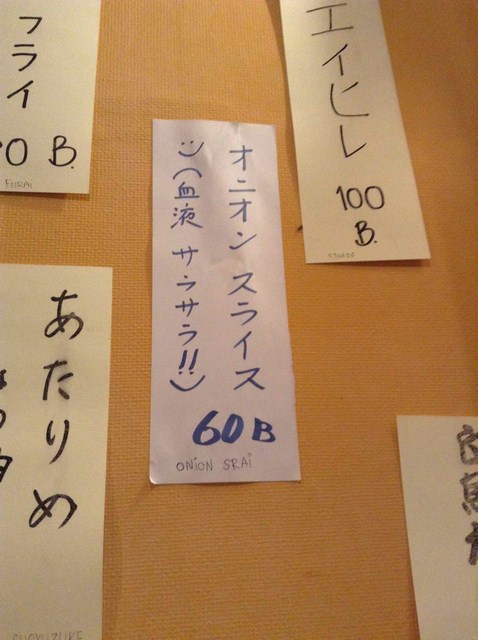 フライ
0 B.
エイヒレ
100
B.
オニオン スライス
:) (血液 サラサラ!!)
60 B
ONION SRAI
あたりめ